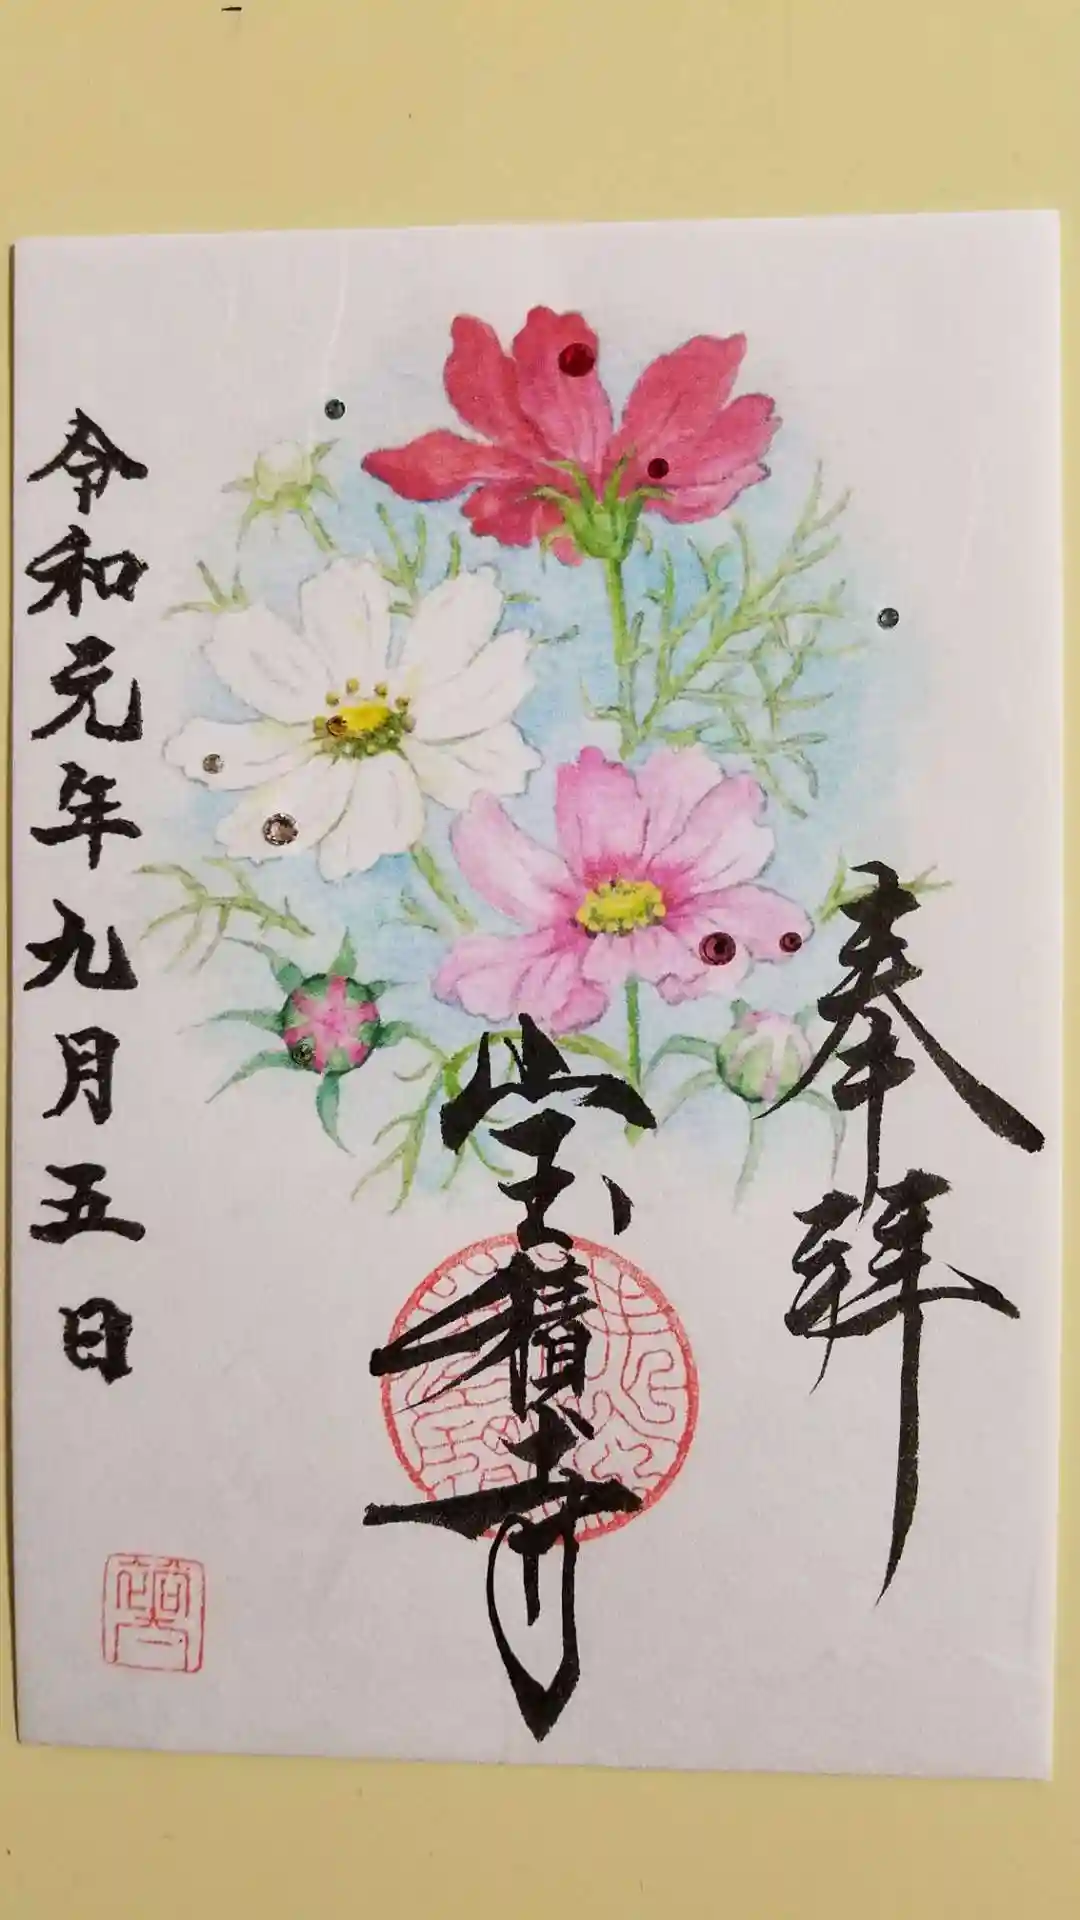 奉拝
宝積寺
令和元年九月五日